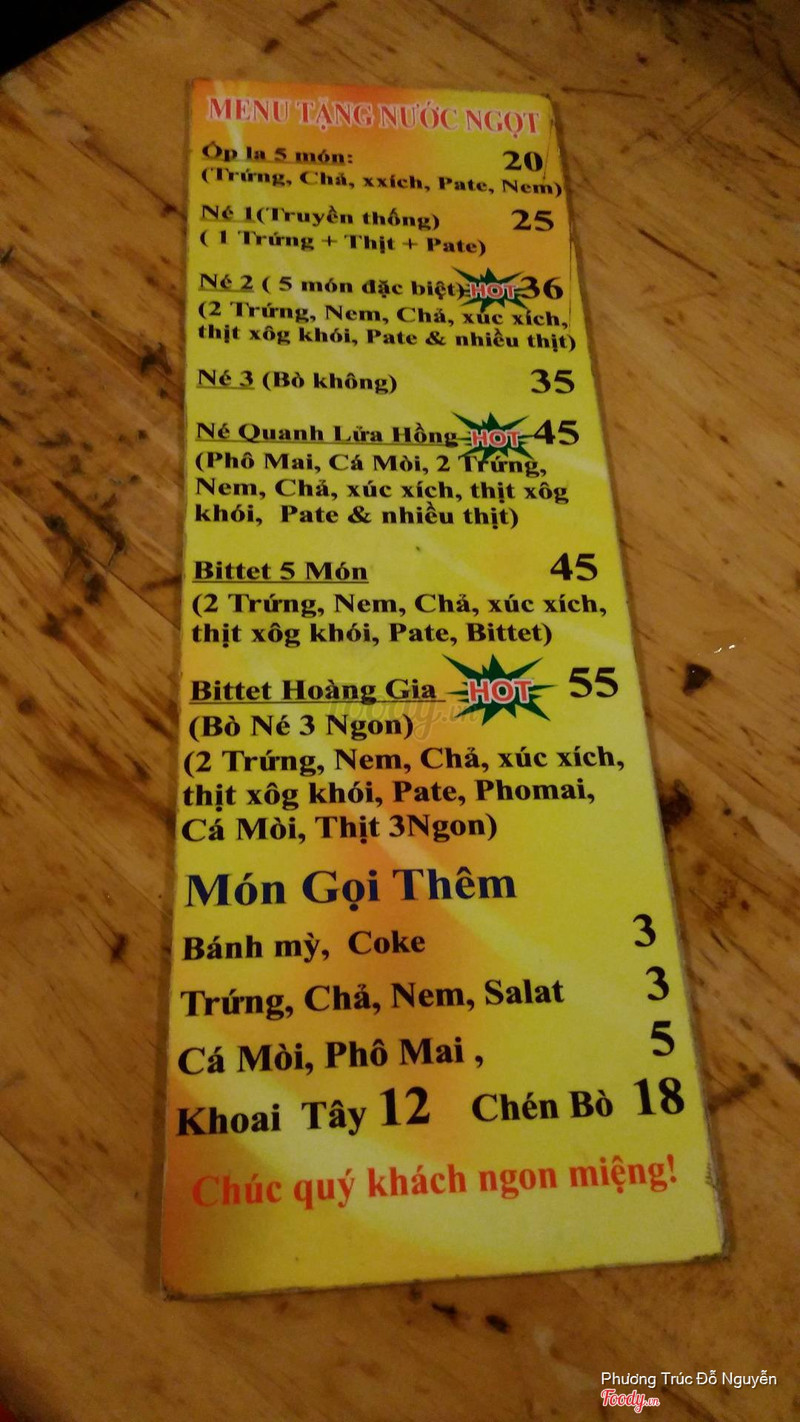 MENU TẶNG NƯỚC NGỌT
Ốp la 5 món: 20
(Trứng, Chả, xxích, Pate, Nem)
Né 1(Truyền thống) 25
( 1 Trứng + Thịt + Pate)
Né 2 ( 5 món đặc biệt) HOT 36
(2 Trứng, Nem, Chả, xúc xích,
thịt xôg khói, Pate & nhiều thịt)
Né 3 (Bò không) 35
Né Quanh Lửa Hồng HOT 45
(Phô Mai, Cá Mòi, 2 Trứng,
Nem, Chả, xúc xích, thịt xôg
khói, Pate & nhiều thịt)
Bittet 5 Món 45
(2 Trứng, Nem, Chả, xúc xích,
thịt xôg khói, Pate, Bittet)
Bittet Hoàng Gia HOT 55
(Bò Né 3 Ngon)
(2 Trứng, Nem, Chả, xúc xích,
thịt xôg khói, Pate, Phomai,
Cá Mòi, Thịt 3Ngon)
Món Gọi Thêm
Bánh mỳ, Coke 3
Trứng, Chả, Nem, Salat 3
Cá Mòi, Phô Mai , 5
Khoai Tây 12 Chén Bò 18
Chúc quý khách ngon miệng!
Foody.vn
Phương Trúc Đỗ Nguyễn
Foody.vn